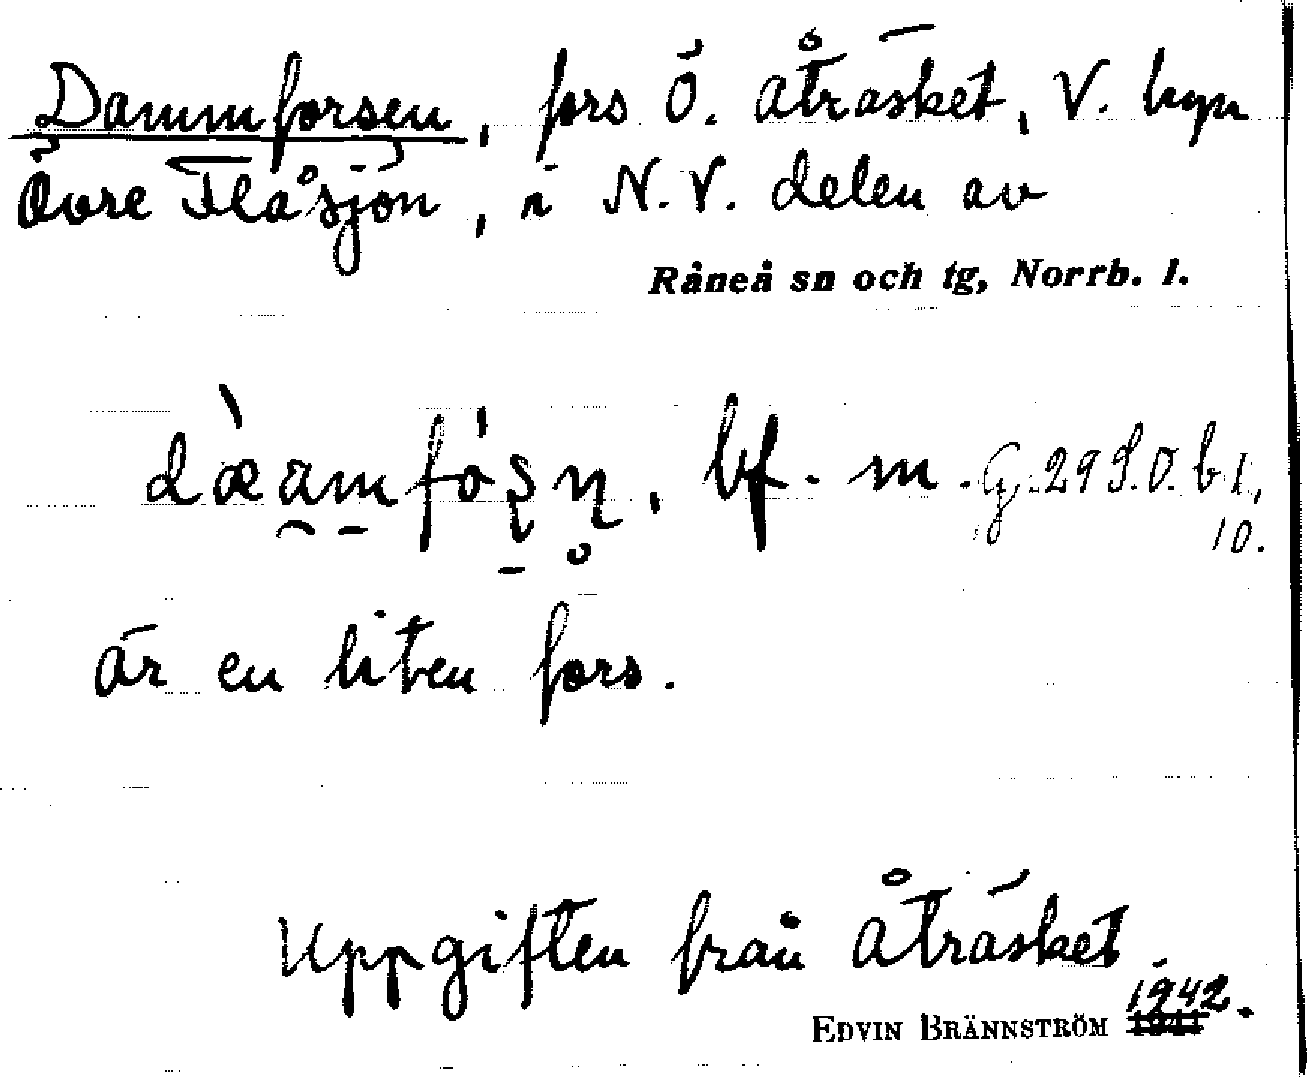 Dammforsen, fors Ö. Åträsket, V. byn
Övre Flåsjön, i N.V. delen av
Råneå sn och tg, Norrb. l.
bf. m.
är en liten fors.
Uppgiften från Åträsket.
EDVIN BRÄNNSTRÖM 1942.